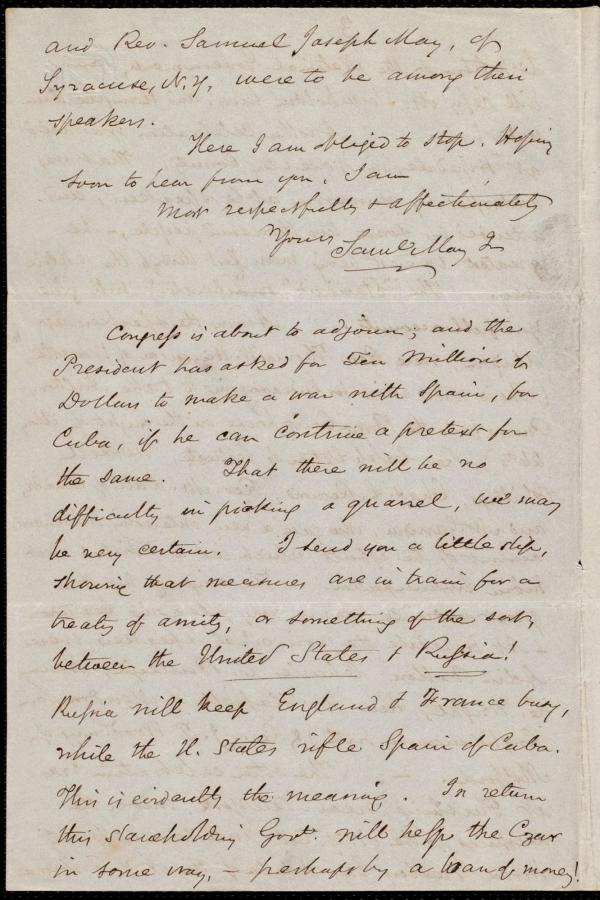 and Rev. Samuel Joseph May, of
Syracuse, N.Y. were to be among their
speakers.
Here I am obliged to stop. Hoping
soon to hear from you, I am
Most respectfully & affectionately
Yours Saml. May Jr
Congress is about to adjourn; and the
President has asked for Ten Millions of
Dollars to make a war with Spain, for
Cuba, if he can contrive a pretext for
the same. That there will be no
difficulty in picking a quarrel, we may
be very certain. I send you a little slip,
showing that measures are in train for a
treaty of amity, or something of the sort,
between the United States & Russia!
Russia will keep England & France busy,
while the U. States rifle Spain of Cuba.
This is evidently the meaning. In return
this slaveholding Govt. will help the Czar
in some way, – perhaps by a loan of money!